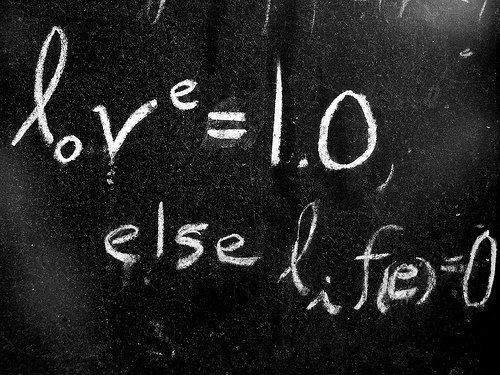 lovᵉ = 1.0,
else lᵢf(e) = 0